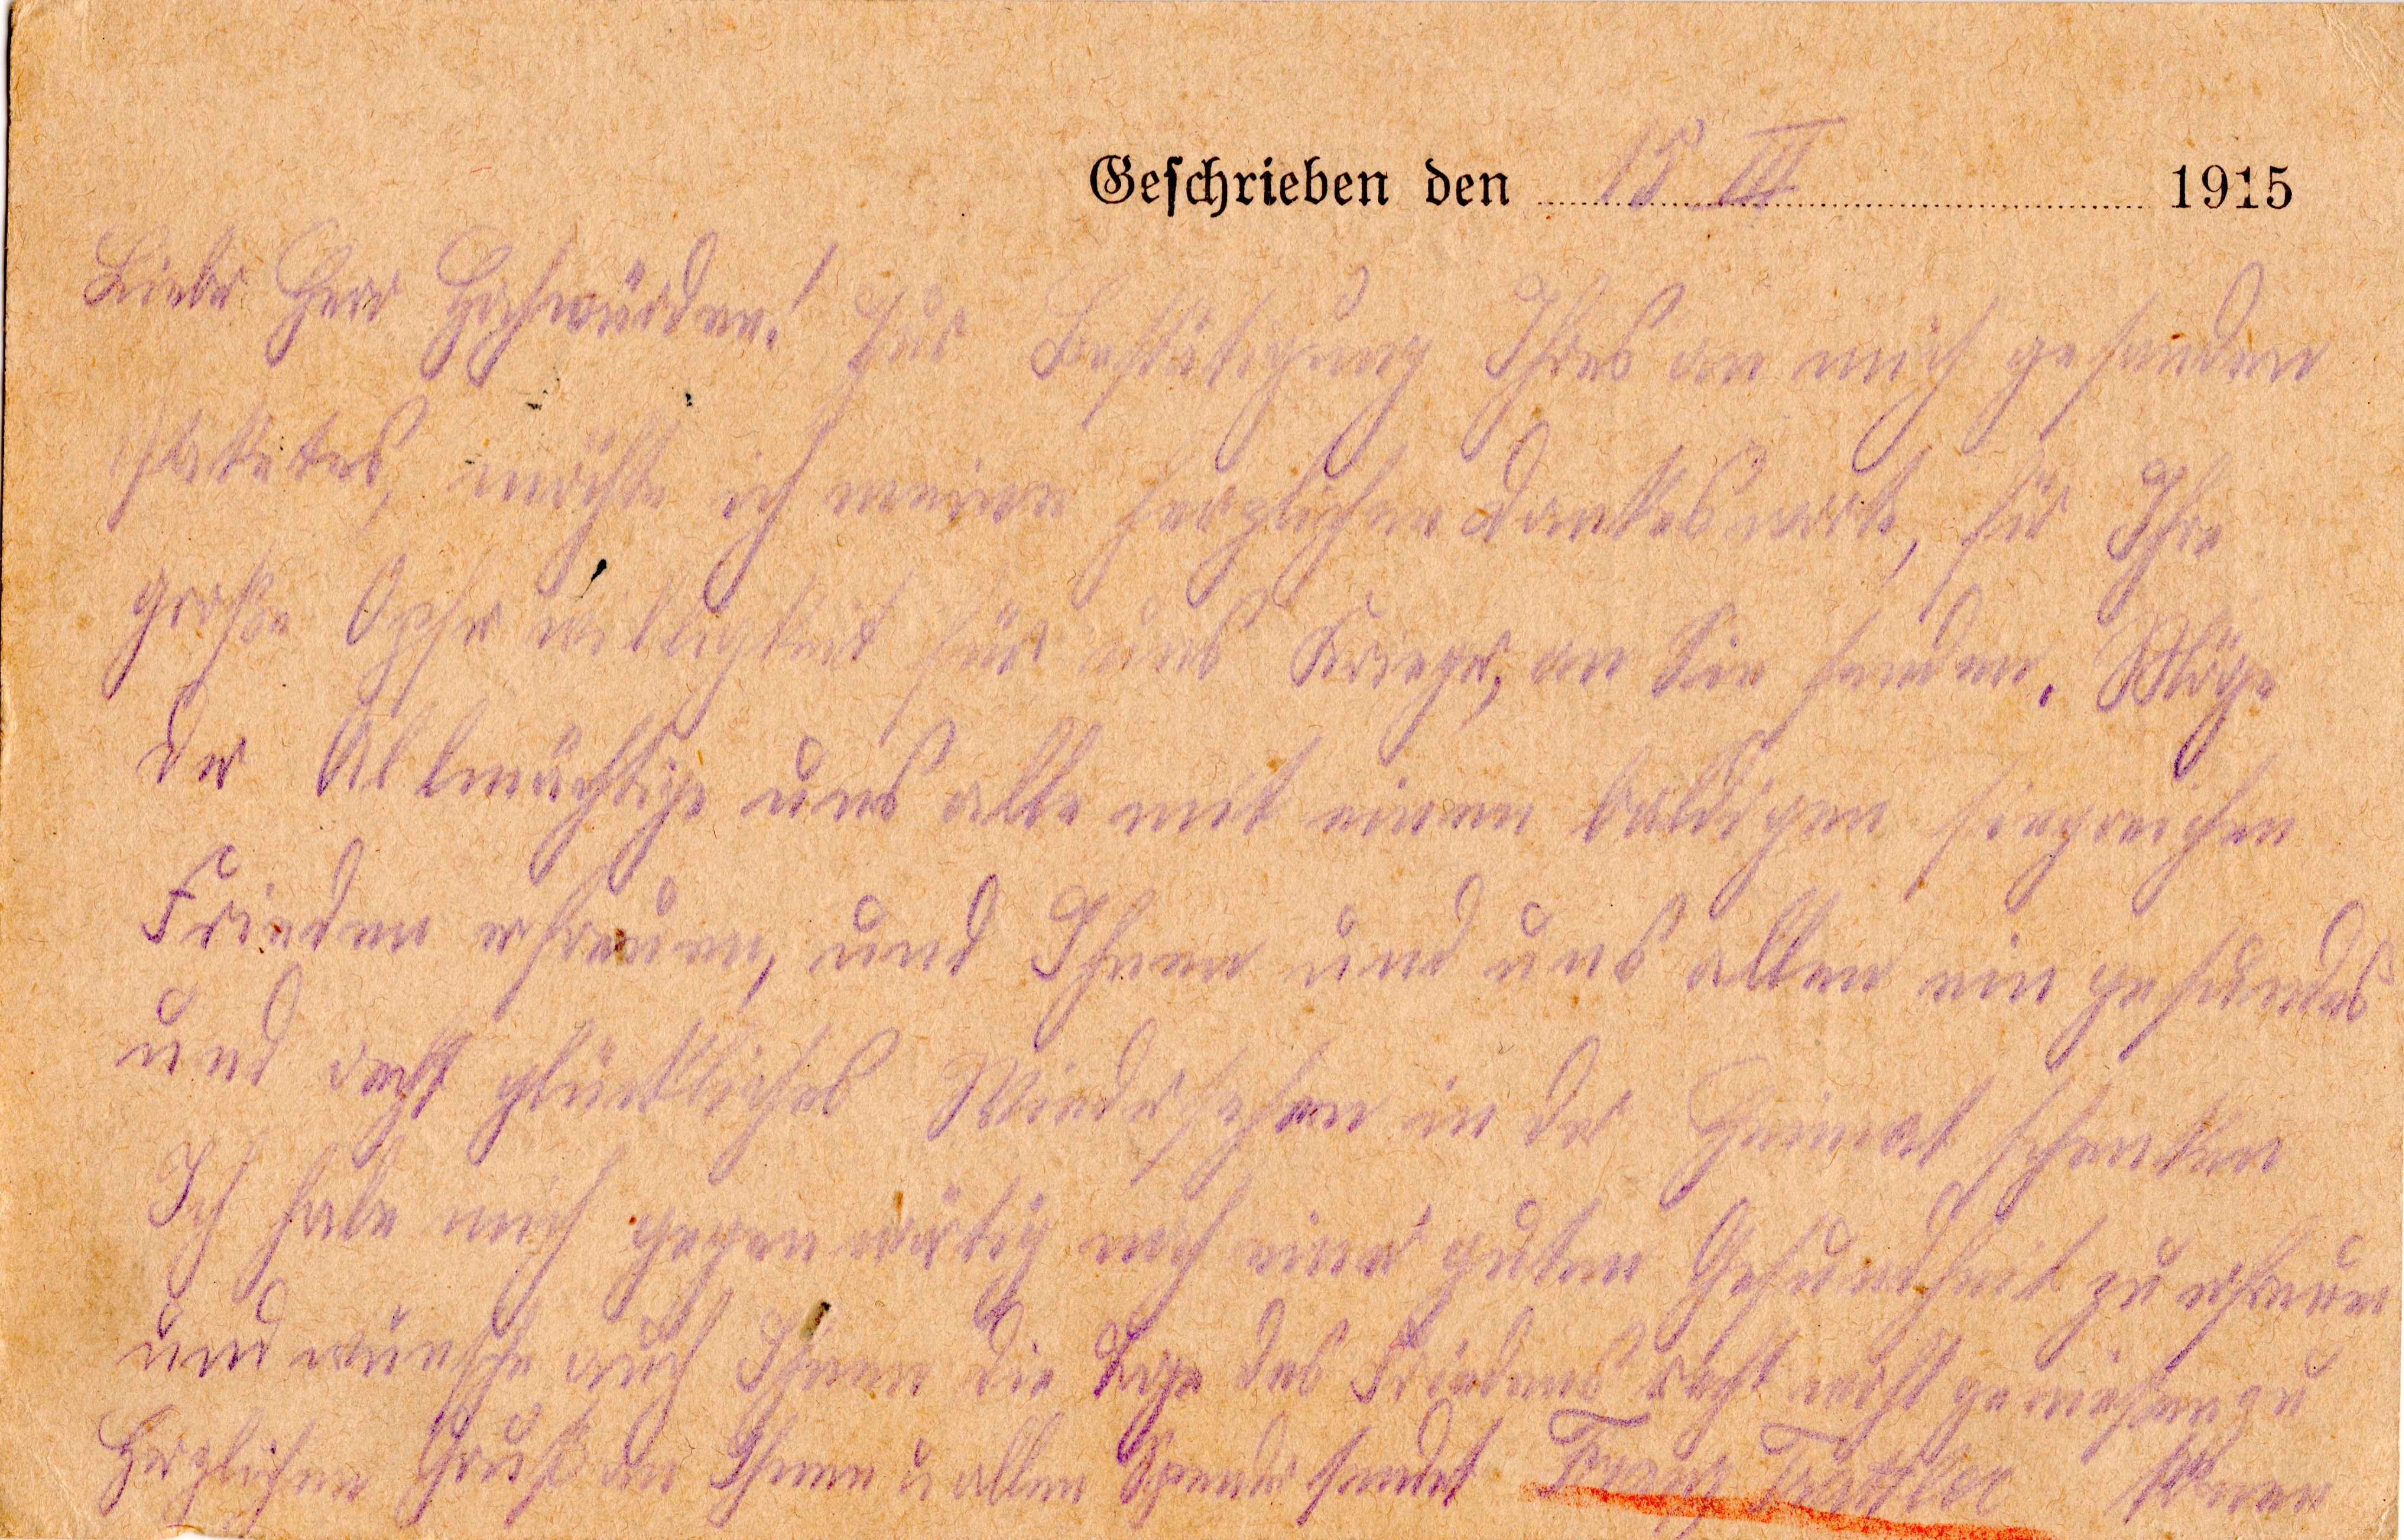 Geschrieben den 15 III 1915
Lieber Herr Hochwürden! Zur Bestätigung Ihres an mich gesanden
Paketes, möchte ich meinen herzlichen Dankes worte, für Ihre
große Opfer willigkeit für uns Krieger, an Sie senden. Möge
der Allmächtige uns alle mit einem baldigen siegreichen
Frieden erfreuen, und Ihnen und uns allen ein gesundes
und recht glückliches Wiedersehen in der Heimat schenken
Ich habe mich gegenwärtig noch einer guten Gesundheit zu erfreuen
und wünsche auch Ihnen die Tage des Friedens recht genießen zu
Herzlichen Gruß an Ihnen u allen Spender sendet Franz können